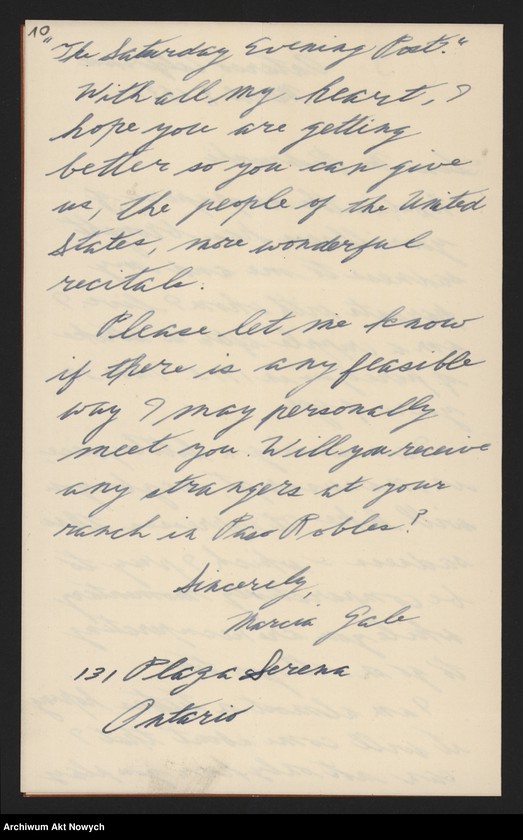 10
"The Saturday Evening Post."
With all my heart, I
hope you are getting
better so you can give
us, the people of the United
States, more wonderful
recitals.
Please let me know
if there is any feasible
way I may personally
meet you. Will you receive
any strangers at your
ranch in Paso Robles?
Sincerely,
Marcia Gale
131 Plaza Serena
Ontario
Archiwum Akt Nowych